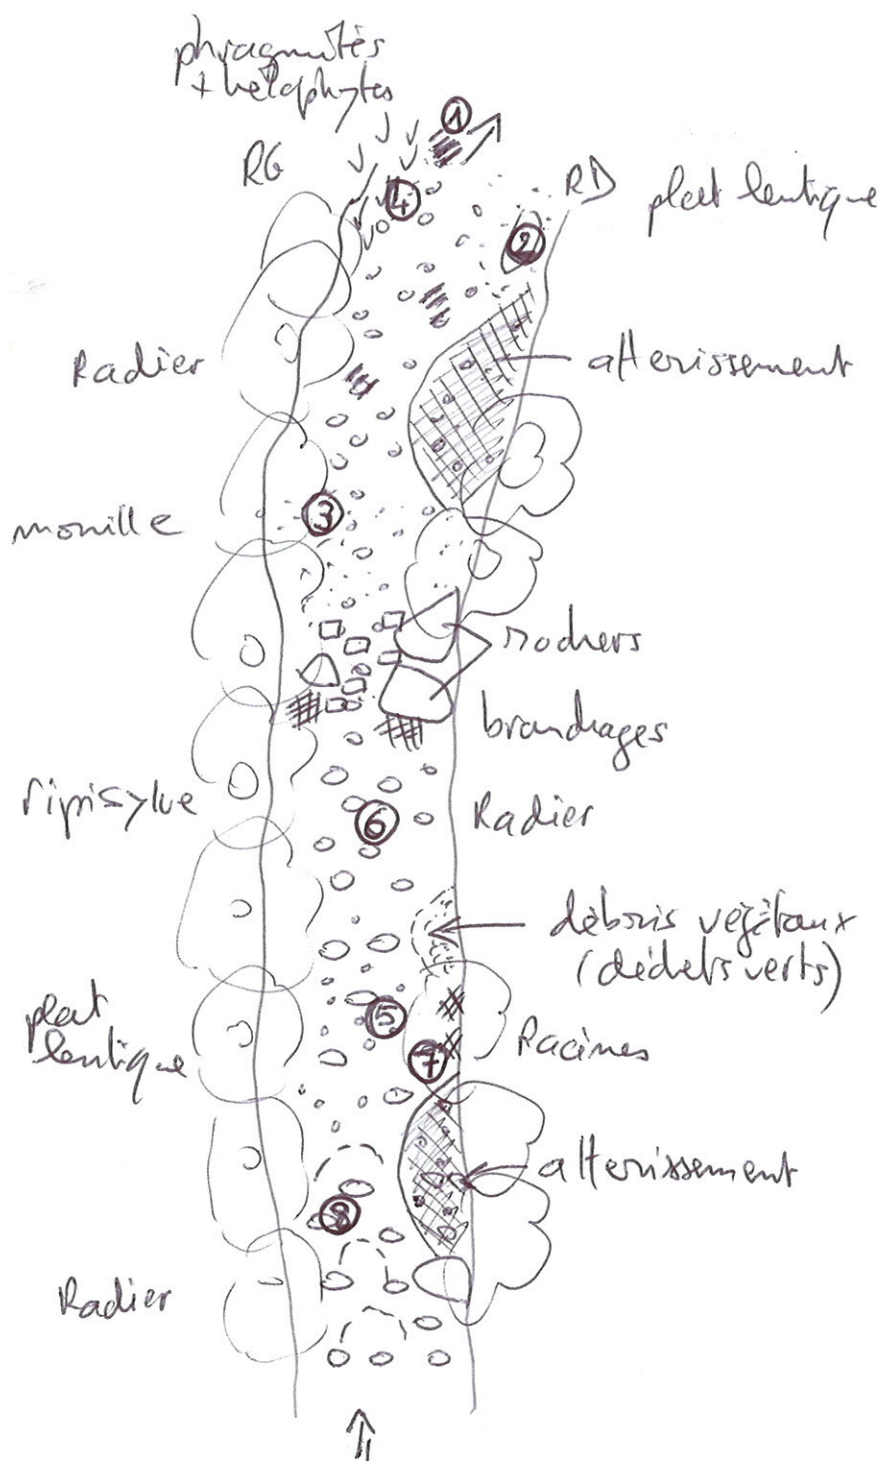 phragmitès
+ hélophytes
①
RG
RD
④
plat lentique
②
Radier
atterissement
③
mouille
rochers
branchages
ripisylve
⑥
Radier
débris végétaux
(déchets verts)
plat
lentique
⑤
Racines
⑦
atterissement
⑧
Radier